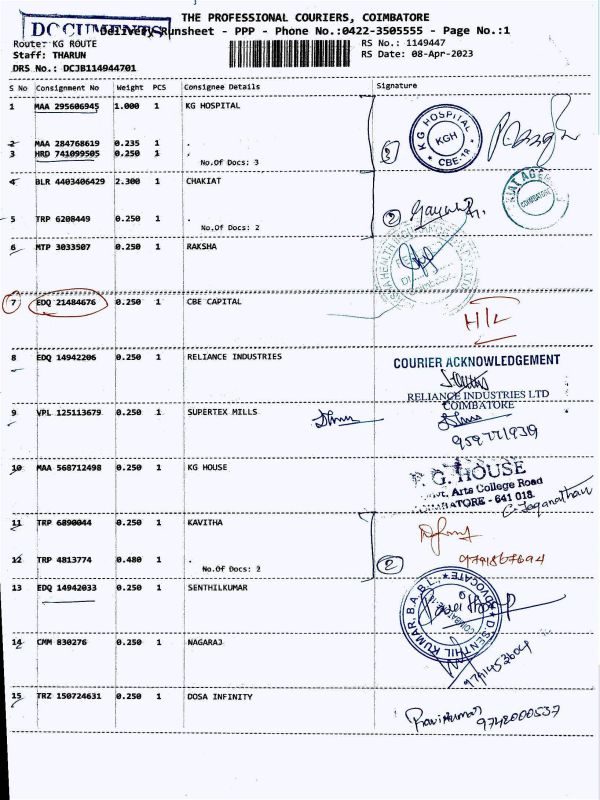 DOCUMENTS
THE PROFESSIONAL COURIERS, COIMBATORE
Delivery Runsheet - PPP - Phone No.:0422-3505555 - Page No.:1
Route: KG ROUTE
RS No.: 1149447
Staff: THARUN
RS Date: 08-Apr-2023
DRS No.: DCJB114944701
S No Consignment No Weight PCS Consignee Details Signature
1 MAA 295606945 1.000 1 KG HOSPITAL
2 MAA 284768619 0.235 1 .
3 HRD 741099505 0.250 1 .
No.Of Docs: 3
3
K G HOSPITAL
KGH
* CBE-18 *
4 BLR 4403406429 2.300 1 CHAKIAT
5 TRP 6208449 0.250 1 .
No.Of Docs: 2
2
COIMBATORE
6 MTP 3033507 0.250 1 RAKSHA
7 EDQ 21484676 0.250 1 CBE CAPITAL
H/L
8 EDQ 14942206 0.250 1 RELIANCE INDUSTRIES
COURIER ACKNOWLEDGEMENT
RELIANCE INDUSTRIES LTD
COIMBATORE
9 VPL 125113679 0.250 1 SUPERTEX MILLS
10 MAA 568712498 0.250 1 KG HOUSE
K. G. HOUSE
Govt. Arts College Road
COIMBATORE - 641 018.
C. Jeganathan
11 TRP 6890044 0.250 1 KAVITHA
12 TRP 4813774 0.480 1 .
No.Of Docs: 2
2
9791867694
13 EDQ 14942033 0.250 1 SENTHILKUMAR
D.SENTHIL KUMAR, B.A.B.L., * ADVOCATE *
14 CMM 830276 0.250 1 NAGARAJ
15 TRZ 150724631 0.250 1 DOSA INFINITY
Ravikumar
9742000537